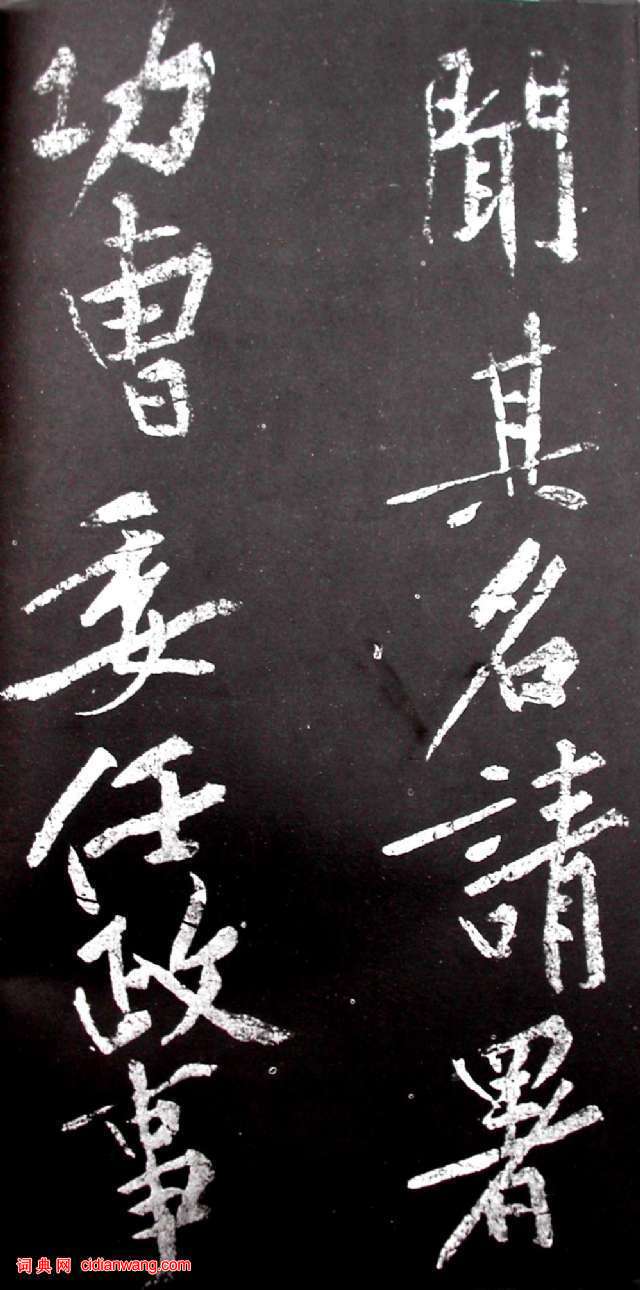 聞其名請署
功曹委任政事
词典网 cidianwang.com